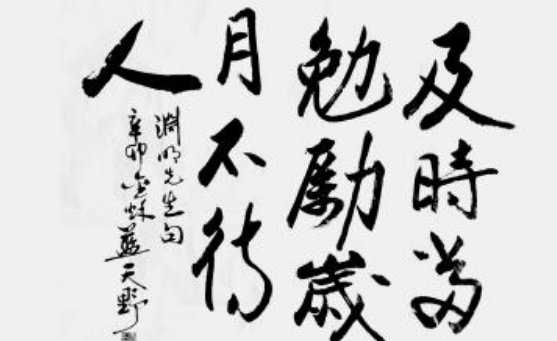 及時當
勉勵歲
月不待
人
淵明先生句
辛卯金秌藍天野